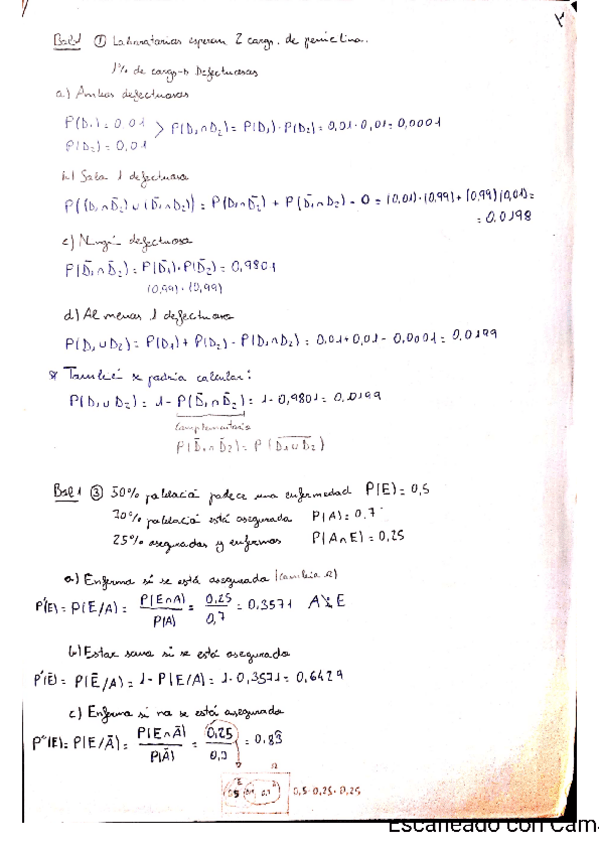 Bol.1 ① Laboratorios esperan 2 cargs. de penicilina.
1% de cargs → Defectuosas
a) Ambas defectuosas
P(D₁) = 0,01
P(D₂) = 0,01
> P(D₁∩D₂) = P(D₁)·P(D₂) = 0,01·0,01 = 0,0001
b) Solo 1 defectuosa
P((D₁∩D̄₂)∪(D̄₁∩D₂)) = P(D₁∩D̄₂) + P(D̄₁∩D₂) - 0 = (0,01)·(0,99) + (0,99)(0,01) =
= 0,0198
c) Ningú defectuosa
P(D̄₁∩D̄₂) = P(D̄₁)·P(D̄₂) = 0,9801
(0,99)·(0,99)
d) Al menos 1 defectuosa
P(D₁∪D₂) = P(D₁) + P(D₂) - P(D₁∩D₂) = 0,01 + 0,01 - 0,0001 = 0,0199
* También se podría calcular:
P(D₁∪D₂) = 1 - P(D̄₁∩D̄₂) = 1 - 0,9801 = 0,0199
Complementario
P(D̄₁∩D̄₂) = P(D₁∪D₂)‾
Bol 1 ③ 50% población padece una enfermedad P(E) = 0,5
70% población está asegurada P(A) = 0,7
25% asegurados y enfermos P(A∩E) = 0,25
a) Enfermo si se está asegurado
P'(E) = P(E/A) = P(E∩A)/P(A) = 0,25/0,7 = 0,3571
b) Estar sano si se está asegurado
P'(Ē) = P(Ē/A) = 1 - P(E/A) = 1 - 0,3571 = 0,6429
c) Enfermo si no se está asegurado
P''(E) = P(E/Ā) = P(E∩Ā)/P(Ā) = 0,25/0,3 = 0,83̂
0,5 - 0,25 = 0,25
Escaneado con Cam